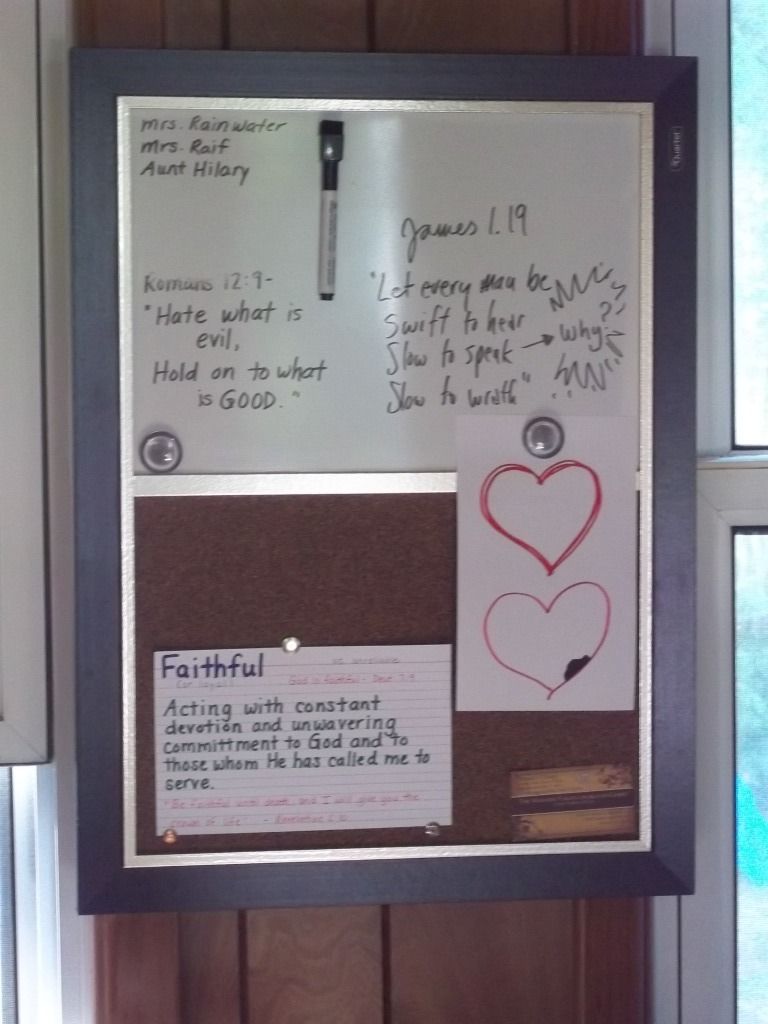 mrs. Rainwater
mrs. Raif
Aunt Hilary
Quartet
James 1.19
Romans 12:9-
"Hate what is
evil,
Hold on to what
is GOOD."
"Let every man be
Swift to hear
Slow to speak → why?
Slow to wrath"
Faithful
(or loyal)
God is faithful - Deut 7:9
Acting with constant
devotion and unwavering
committment to God and to
those whom He has called me to
serve.
"Be faithful until death, and I will give you the
crown of life" - Revelation